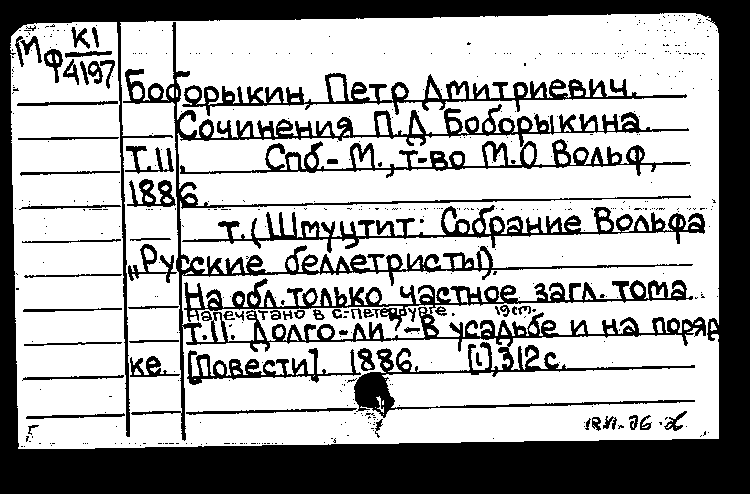 Мф К1
4197
Боборыкин, Петр Дмитриевич.
Сочинения П.Д. Боборыкина.
Т.11. Спб.-М., т-во М.О. Вольф,
1886.
т. (Шмуцтит: Собрание Вольфа
„Русские беллетристы).
На обл. только частное загл. тома.
Напечатано в С.-Петербурге. 19 cm.
т.11. Долго-ли? - В усадьбе и на поряд
ке. [Повести]. 1886. [1], 312 с.